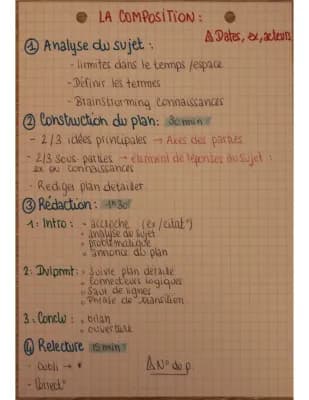 LA COMPOSITION :
⚠ Dates, ex, acteurs
① Analyse du sujet :
- limites dans le temps / espace
- Définir les termes
- Brainstorming connaissances
② Construction du plan : 30 min
- 2/3 idées principales → Axes des parties
- 2/3 sous parties → élément de réponses au sujet :
ex ou connaissances
- Rediger plan detailler
③ Rédaction : 1h30
1 : Intro : • accroche (ex / citat°)
• analyse du sujet
• problematique
• annonce du plan
2 : Dvlpmt : • Suivre plan détaille
• Connecteurs logiques
• Saut de lignes
• Phrase de transition
3 : Conclu : • bilan
• ouverture
④ Relecture 15 min
- Oubli → *
- Correct°
⚠ N° de p.